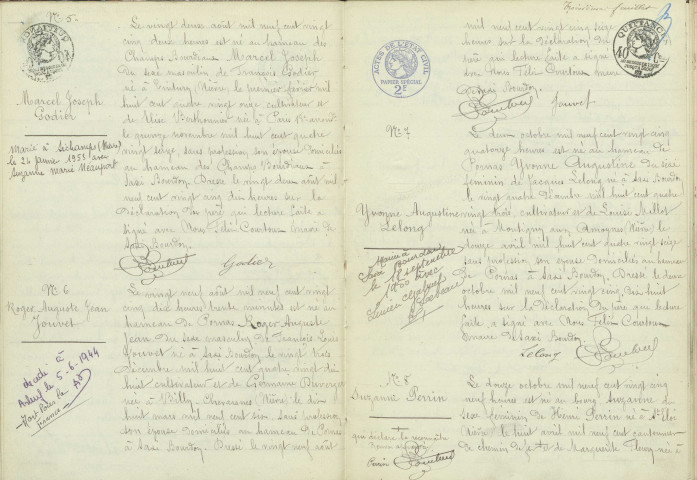 N° 5
Marcel Joseph
Godier
Marié à
le 24 1951 avec
Suzanne Marie
Le vingt deux août mil neuf cent vingt
cinq deux heures est né au hameau des
Champs Bourdeaux Marcel Joseph
du sexe masculin de François Godier
né à le premier février mil
huit cent quatre vingt onze cultivateur et
de née à Paris
le quinze novembre mil huit cent quatre
vingt seize, sans profession, son épouse domiciliés
au hameau des Champs à
Saxi Bourdon. Dressé le vingt deux août mil
neuf cent vingt cinq dix heures sur la
déclaration du père qui lecture faite a
signé avec Nous Félix Courtrau maire de
Saxi Bourdon.
Godier
N° 6
Roger Auguste Jean
Jouvet
décédé à
le 5-6-1944
Mort Pour la
France
Le vingt neuf août mil neuf cent vingt
cinq dix heures trente minutes est né au
hameau de Ponas Roger Auguste
Jean du sexe masculin de François Louis
Jouvet né à Saxi Bourdon le vingt trois
décembre mil huit cent quatre vingt dix
huit cultivateur et de Germaine
née à Billy Chevannes (Nièvre) le dix
huit mars mil neuf cent six, sans profession
son épouse domiciliés au hameau de Ponas
à Saxi Bourdon. Dressé le vingt neuf août
Troisième feuillet
ACTES DE L'ETAT CIVIL
PAPIER SPECIAL
2F
QUITTANCES
mil neuf cent vingt cinq seize
heures sur la déclaration du
père qui lecture faite a signé
avec Nous Félix Courtrau maire
de Saxi Bourdon.
Jouvet
N° 7
Yvonne Augustine
Lelong
Mariée à
Saxi Bourdon
le 18 septembre
avec
Lucien
Le deux octobre mil neuf cent vingt cinq
quatorze heures est née au hameau de
Ponas Yvonne Augustine du sexe
féminin de Jacques Lelong né à Saxi Bourdon
le vingt quatre mil huit cent quatre
vingt trois, cultivateur et de Louise Millot
née à Montigny aux Amognes (Nièvre) le
douze avril mil huit cent quatre vingt seize
sans profession son épouse domiciliés au hameau
de Ponas à Saxi Bourdon. Dressé le deux
octobre mil neuf cent vingt cinq dix huit
heures sur la déclaration du père qui lecture
faite, a signé avec Nous Félix Courtrau
maire de Saxi Bourdon.
Lelong
N° 8
Suzanne Perrin
Perrin
Le douze octobre mil neuf cent vingt cinq
neuf heures est née au bourg, Suzanne du
sexe féminin de Henri Perrin né à St Eloi
(Nièvre) le huit avril mil neuf cent cantonnier
de chemin de fer et de Marguerite née à